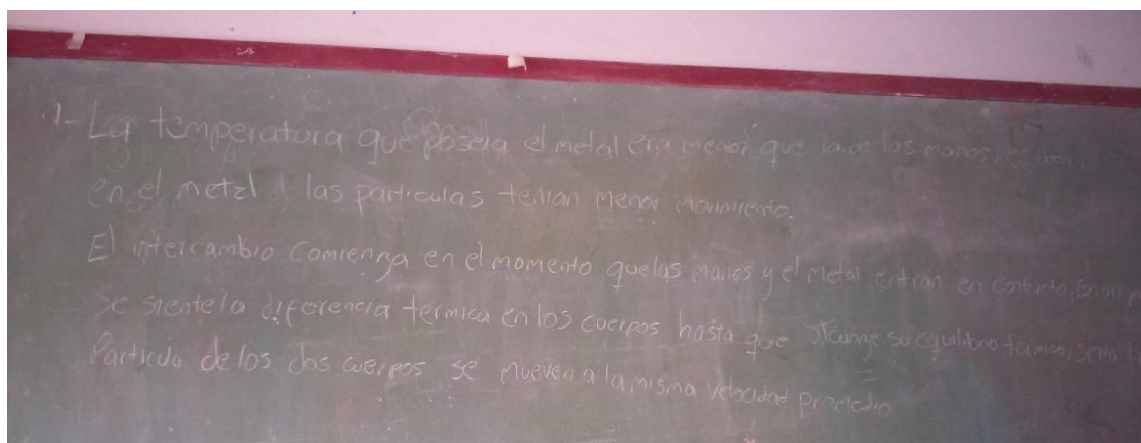 1- La temperatura que poseia el metal era menor que la de las manos, es decir,
en el metal las particulas tenian menor movimiento.
El intercambio comienza en el momento que las manos y el metal entran en contacto, en un
se siente la diferencia termica en los cuerpos hasta que alcanze su equilibrio termico, seria
Particula de los dos cuerpos se mueven a la misma velocidad promedio